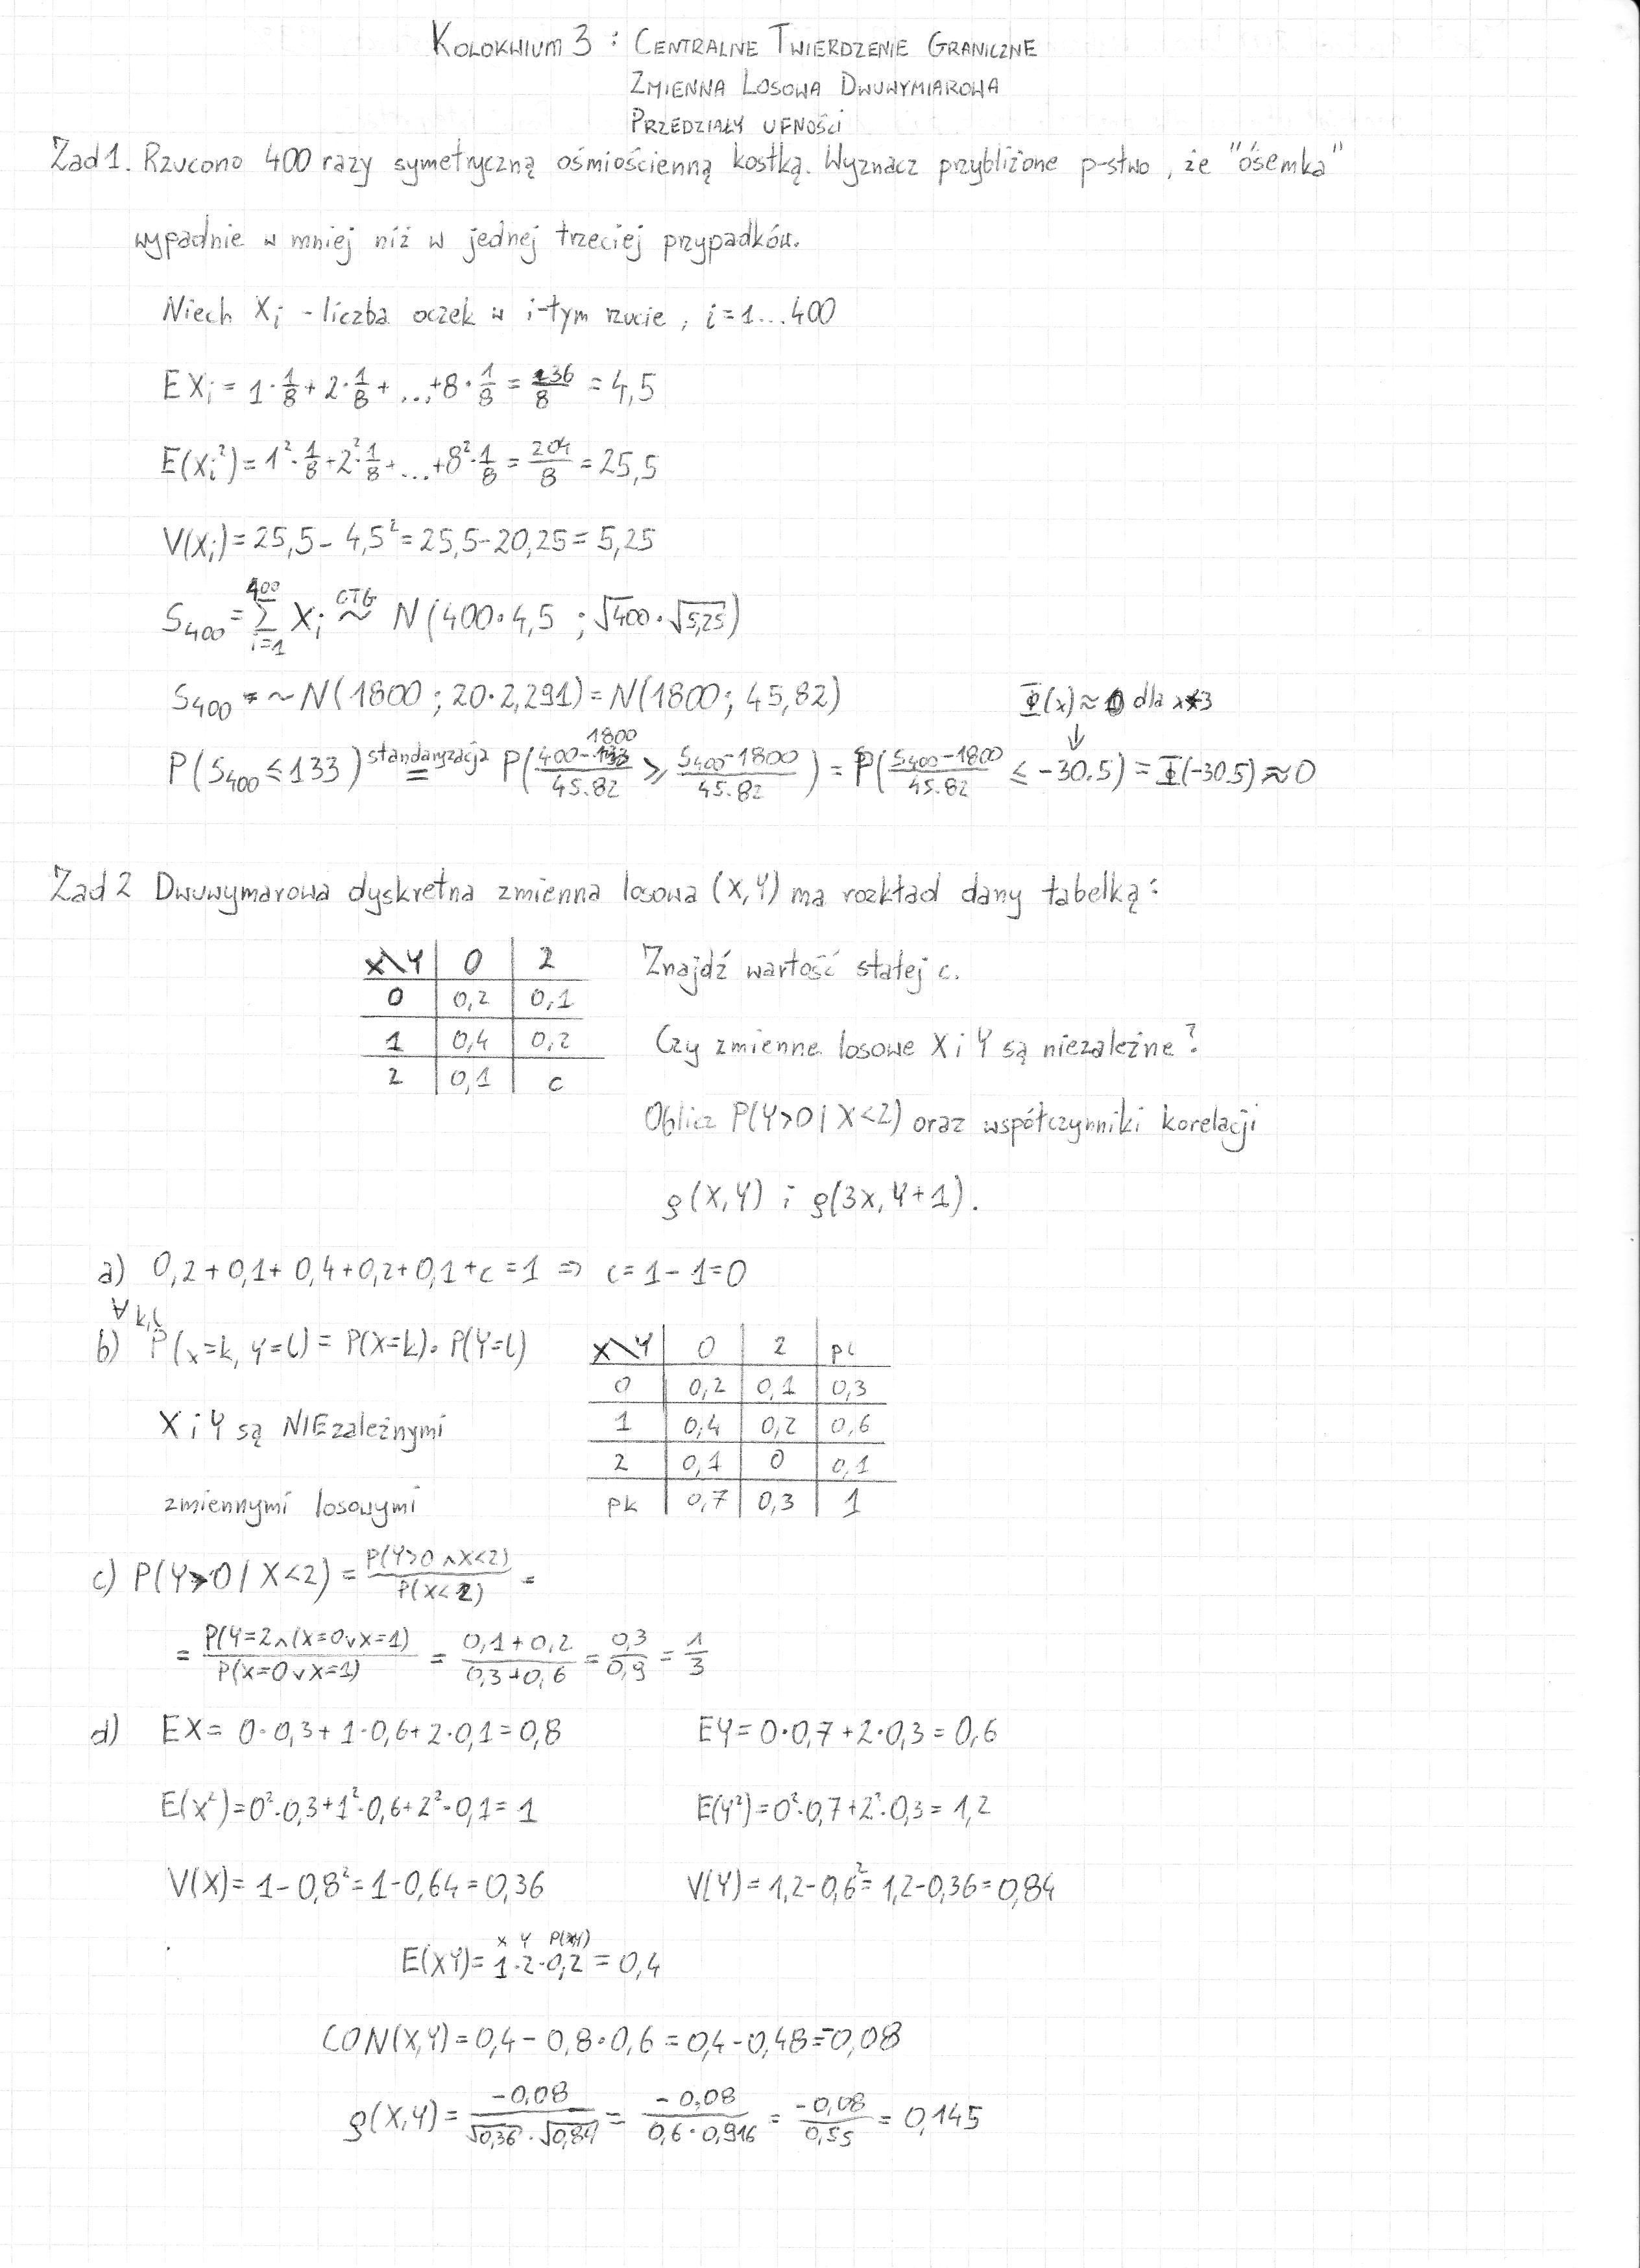 KOLOKWIUM 3 : CENTRALNE TWIERDZENIE GRANICZNE
ZMIENNA LOSOWA DWUWYMIAROWA
PRZEDZIAŁY UFNOŚCI
Zad 1. Rzucono 400 razy symetryczną ośmiościenną kostką. Wyznacz przybliżone p-stwo, że "ósemka"
wypadnie w mniej niż w jednej trzeciej przypadków.
Niech Xi - liczba oczek w i-tym rzucie, i=1...400
EXi = 1·1/8 + 2·1/8 + ... +8·1/8 = 36/8 = 4,5
E(Xi²) = 1²·1/8 + 2²·1/8 + ... +8²·1/8 = 204/8 = 25,5
V(Xi) = 25,5 - 4,5² = 25,5 - 20,25 = 5,25
S400 = ∑_{i=1}^{400} Xi CTG ~ N(400·4,5 ; √400·√5,25)
S400 ~ N(1800 ; 20·2,291) = N(1800; 45,82) Φ(x)≈0 dla x<-3
P(S400 ≤ 133) standaryzacja = P((400-1800)/45.82 ≥ (S400-1800)/45.82) = P((S400-1800)/45.82 ≤ -30.5) = Φ(-30.5) ≈ 0
Zad 2 Dwuwymarowa dyskretna zmienna losowa (X,Y) ma rozkład dany tabelką:
X\Y | 0 | 2
0 | 0,2 | 0,1
1 | 0,4 | 0,2
2 | 0,1 | c
Znajdź wartość stałej c.
Czy zmienne losowe X i Y są niezależne?
Oblicz P(Y>0 | X<2) oraz współczynniki korelacji
ρ(X,Y) i ρ(3X, Y+1).
a) 0,2+0,1+0,4+0,2+0,1+c=1 ⇒ c=1-1=0
∀ k,l
b) P(x=k, y=l) = P(X=k)·P(Y=l)
X i Y są NIEzależnymi
zmiennymi losowymi
X\Y | 0 | 2 | pl
0 | 0,2 | 0,1 | 0,3
1 | 0,4 | 0,2 | 0,6
2 | 0,1 | 0 | 0,1
pk | 0,7 | 0,3 | 1
c) P(Y>0 | X<2) = P(Y>0 ∧ X<2)/P(X<2) =
= P(Y=2∧(X=0∨X=1)/P(X=0∨X=1) = (0,1+0,2)/(0,3+0,6) = 0,3/0,9 = 1/3
d) EX = 0·0,3+1·0,6+2·0,1=0,8 EY=0·0,7+2·0,3=0,6
E(X²)=0²·0,3+1²·0,6+2²·0,1=1 E(Y²)=0²·0,7+2²·0,3=1,2
V(X)=1-0,8²=1-0,64=0,36 V(Y)=1,2-0,6²=1,2-0,36=0,84
x y P(x,y)
E(XY)=1·2·0,2=0,4
CON(X,Y)=0,4-0,8·0,6=0,4-0,48=-0,08
ρ(X,Y) = -0,08/(√0,36·√0,84) = -0,08/(0,6·0,916) = -0,08/0,55 = 0,145